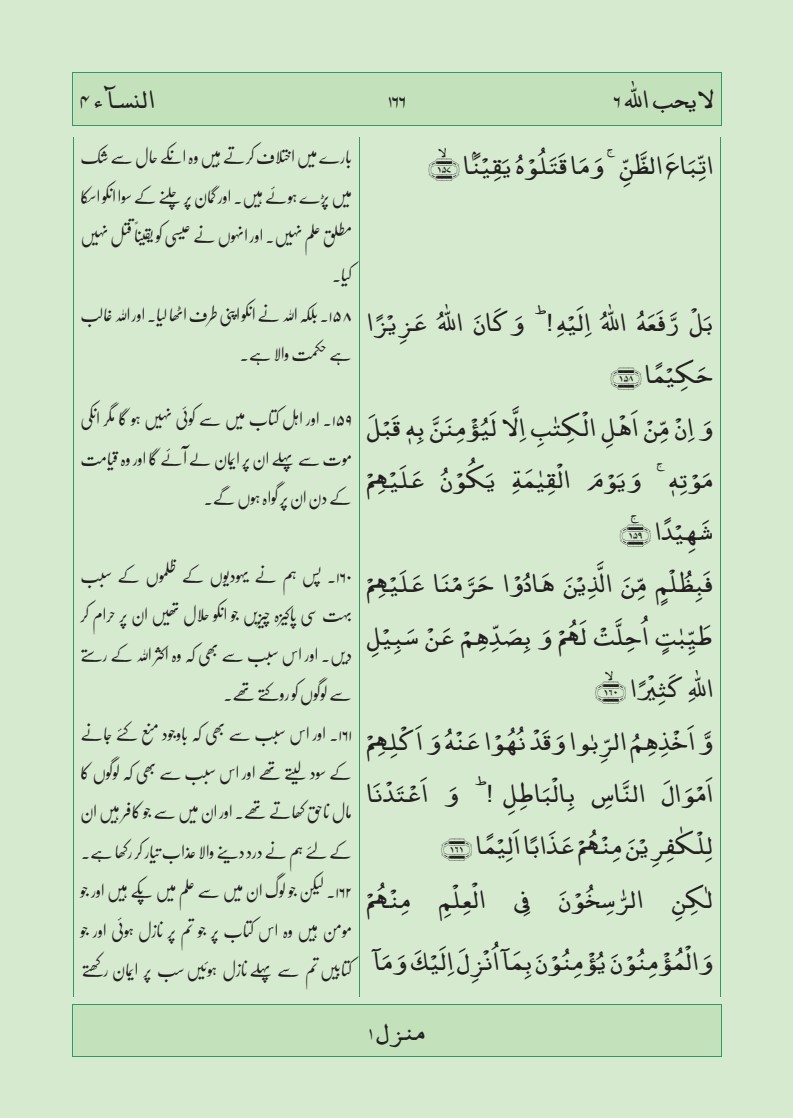 لا یحب اللّٰہ ۶
۱۶۶
النسآء ۴
اتِّبَاعَ الظَّنِّ ۚ وَ مَا قَتَلُوْهُ یَقِیْنًۢا ۙ﴿۱۵۷﴾
بَلْ رَّفَعَهُ اللّٰهُ اِلَیْهِ! ؕ وَ كَانَ اللّٰهُ عَزِیْزًا
حَكِیْمًا ﴿۱۵۸﴾
وَ اِنْ مِّنْ اَهْلِ الْكِتٰبِ اِلَّا لَیُؤْمِنَنَّ بِهٖ قَبْلَ
مَوْتِهٖ ۚ وَ یَوْمَ الْقِیٰمَةِ یَكُوْنُ عَلَیْهِمْ
شَهِیْدًا ۚ﴿۱۵۹﴾
فَبِظُلْمٍ مِّنَ الَّذِیْنَ هَادُوْا حَرَّمْنَا عَلَیْهِمْ
طَیِّبٰتٍ اُحِلَّتْ لَهُمْ وَ بِصَدِّهِمْ عَنْ سَبِیْلِ
اللّٰهِ كَثِیْرًا ۙ﴿۱۶۰﴾
وَّ اَخْذِهِمُ الرِّبٰوا وَ قَدْ نُهُوْا عَنْهُ وَ اَكْلِهِمْ
اَمْوَالَ النَّاسِ بِالْبَاطِلِ! ؕ وَ اَعْتَدْنَا
لِلْكٰفِرِیْنَ مِنْهُمْ عَذَابًا اَلِیْمًا ﴿۱۶۱﴾
لٰكِنِ الرّٰسِخُوْنَ فِی الْعِلْمِ مِنْهُمْ
وَ الْمُؤْمِنُوْنَ یُؤْمِنُوْنَ بِمَاۤ اُنْزِلَ اِلَیْكَ وَ مَاۤ
بارے میں اختلاف کرتے ہیں وہ انکے حال سے شک
میں پڑے ہوئے ہیں۔ اور گمان پر چلنے کے سوا انکو اسکا
مطلق علم نہیں۔ اور انہوں نے عیسیٰ کو یقیناً قتل نہیں
کیا۔
۱۵۸۔ بلکہ اللہ نے انکو اپنی طرف اٹھا لیا۔ اور اللہ غالب
ہے حکمت والا ہے۔
۱۵۹۔ اور اہل کتاب میں سے کوئی نہیں ہو گا مگر انکی
موت سے پہلے ان پر ایمان لے آئے گا اور وہ قیامت
کے دن ان پر گواہ ہوں گے۔
۱۶۰۔ پس ہم نے یہودیوں کے ظلموں کے سبب
بہت سی پاکیزہ چیزیں جو انکو حلال تھیں ان پر حرام کر
دیں۔ اور اس سبب سے بھی کہ وہ اکثر اللہ کے رستے
سے لوگوں کو روکتے تھے۔
۱۶۱۔ اور اس سبب سے بھی کہ باوجود منع کئے جانے
کے سود لیتے تھے اور اس سبب سے بھی کہ لوگوں کا
مال ناحق کھاتے تھے۔ اور ان میں سے جو کافر ہیں ان
کے لئے ہم نے درد دینے والا عذاب تیار کر رکھا ہے۔
۱۶۲۔ لیکن جو لوگ ان میں سے علم میں پکے ہیں اور جو
مومن ہیں وہ اس کتاب پر جو تم پر نازل ہوئی اور جو
کتابیں تم سے پہلے نازل ہوئیں سب پر ایمان رکھتے
منزل ۱